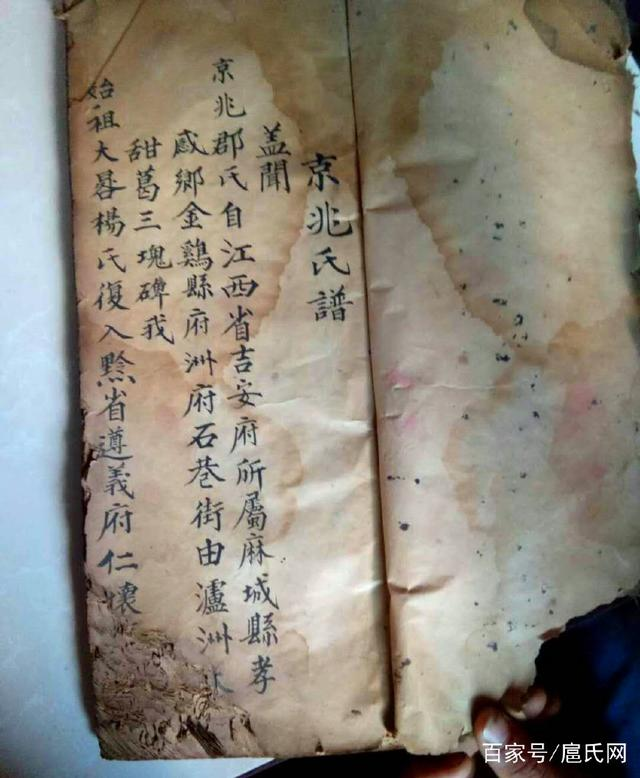 京兆氏譜
盖聞
京兆郡氏自江西省吉安府所屬麻城縣孝
感鄉金鷄縣府洲府石巷街由瀘洲
甜葛三塊碑我
始祖大晷楊氏復入黔省遵義府仁懷
百家号/扈氏网